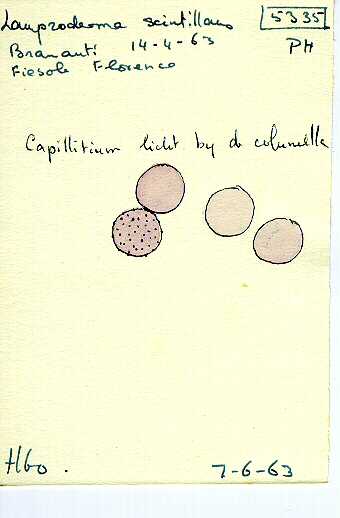 Lamproderma scintillans
5335
Brananti 14-4-63
PH
Fiesole Florence
Capillitium licht by de columella
H60.
7-6-63